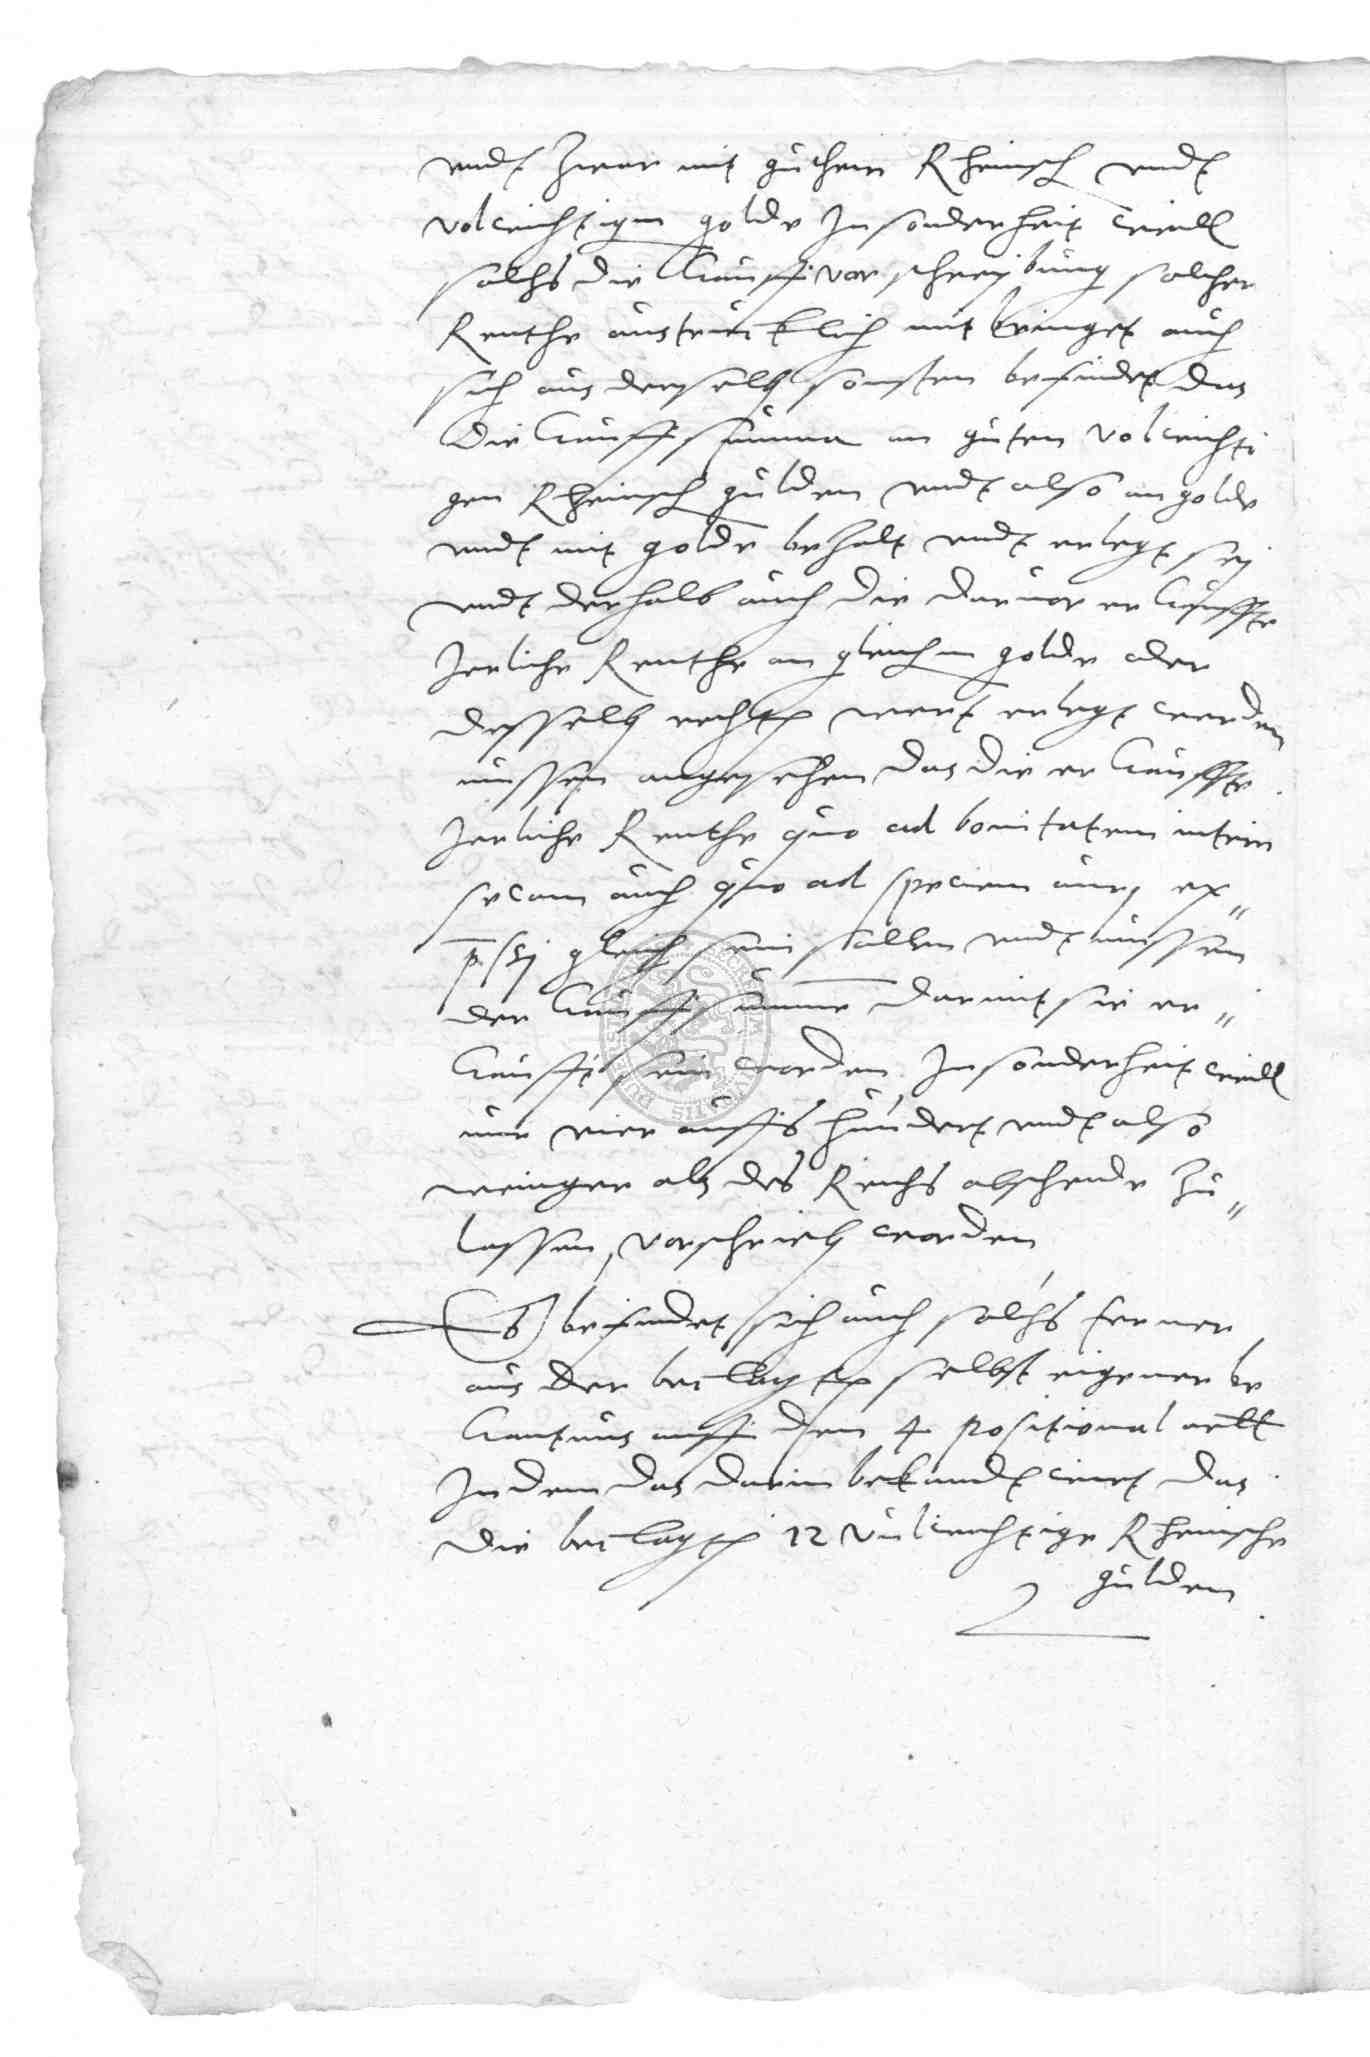 undt zwar mit guthem Rheinisch undt
volwichtigem golde Insonderheit weill
solchs die Kauffvorschreybung solcher
Renthe austrücklich mitbringet auch
sich aus derselb sonsten befindet das
die Kauffsumma an guten volwichti
gen Rheinisch gulden undt also an golde
undt mit golde bezalt undt erlegt sey
undt derhalb auch die darvor erkauffte
Jerliche Renthe an gleichem golde oder
desselb rechten wert erlegt werden
mussen angesehen das die erkauffte
Jerliche Renthe quo ad bonitatem intrin
secam auch quo ad speciem auri ex„
pssi gleich sein sollen undt mussen
der Kauffsumme darmit sie er„
kaufft sein worden, Insonderheit weill
nur vier auffs hundert undt also
weiniger als des Reichs abscheide zu„
lassen, vorschrieb worden
Es befindet sich auch solchs ferner
aus der beclagten selbst eigener be
kantnus auff den 4 positional artt
In dem das darin bekandt wirt das
die beclagten 12 vulwichtige Rheinische
gulden